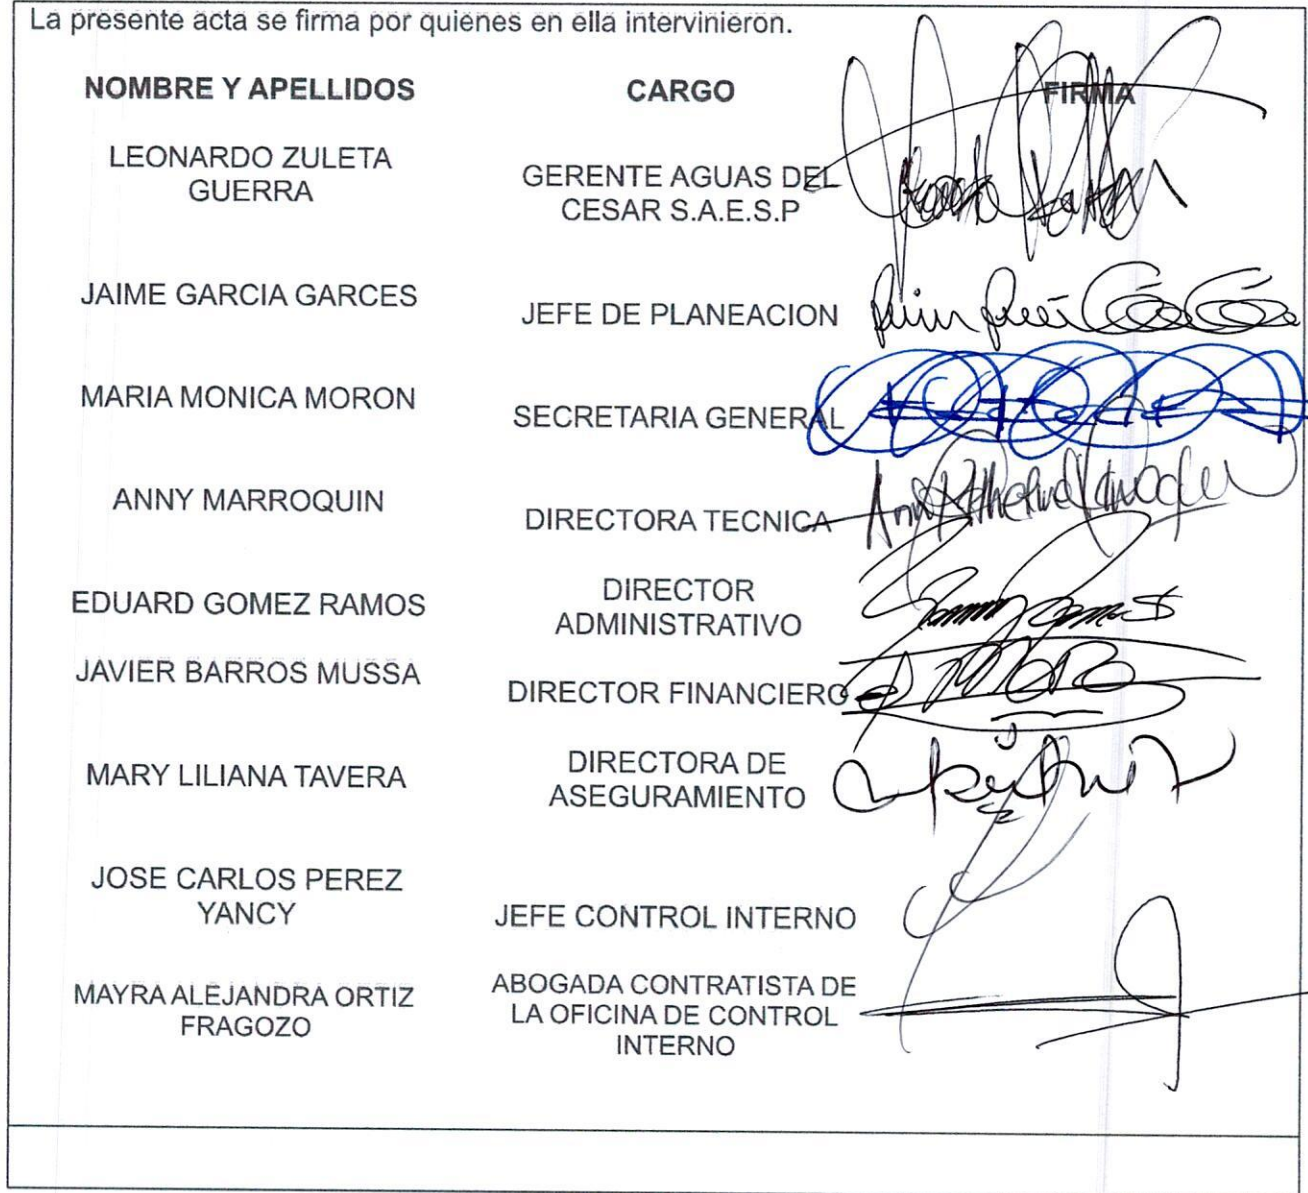 La presente acta se firma por quienes en ella intervinieron.
NOMBRE Y APELLIDOS CARGO FIRMA
LEONARDO ZULETA
GUERRA
GERENTE AGUAS DEL
CESAR S.A.E.S.P
JAIME GARCIA GARCES
JEFE DE PLANEACION
MARIA MONICA MORON
SECRETARIA GENERAL
ANNY MARROQUIN
DIRECTORA TECNICA
EDUARD GOMEZ RAMOS
DIRECTOR
ADMINISTRATIVO
JAVIER BARROS MUSSA
DIRECTOR FINANCIERO
MARY LILIANA TAVERA
DIRECTORA DE
ASEGURAMIENTO
JOSE CARLOS PEREZ
YANCY
JEFE CONTROL INTERNO
MAYRA ALEJANDRA ORTIZ
FRAGOZO
ABOGADA CONTRATISTA DE
LA OFICINA DE CONTROL
INTERNO